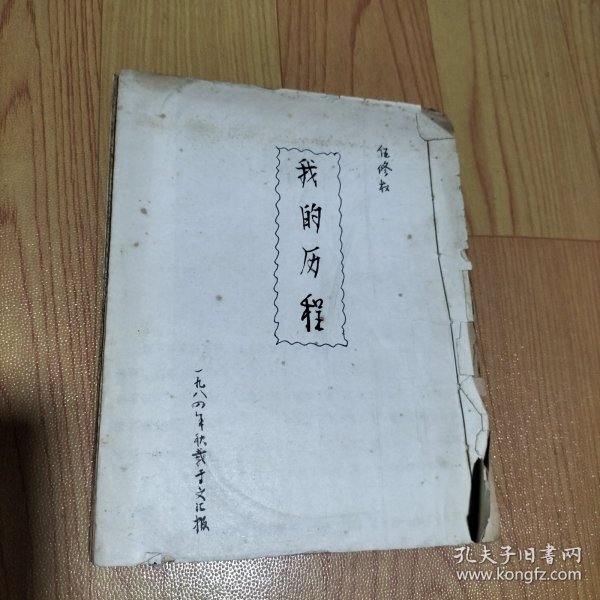 我的历程
一九八四年秋载于文汇报
孔夫子旧书网
www.kongfz.com